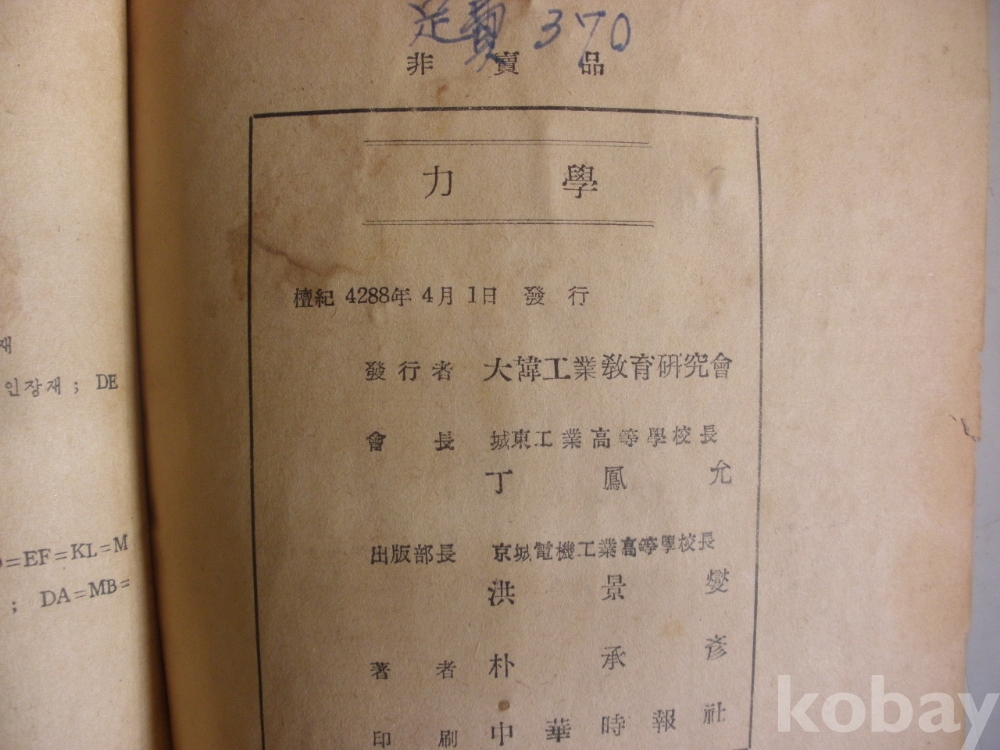 재
인장재 ; DE
=EF=KL=M
; DA=MB=
370
非賣品
力學
檀紀 4288年 4月 1日 發行
發行者 大韓工業敎育硏究會
會長 城東工業高等學校長
丁鳳允
出版部長 京城電機工業高等學校長
洪景燮
著者 朴承彥
印刷 中華時報社
kobay